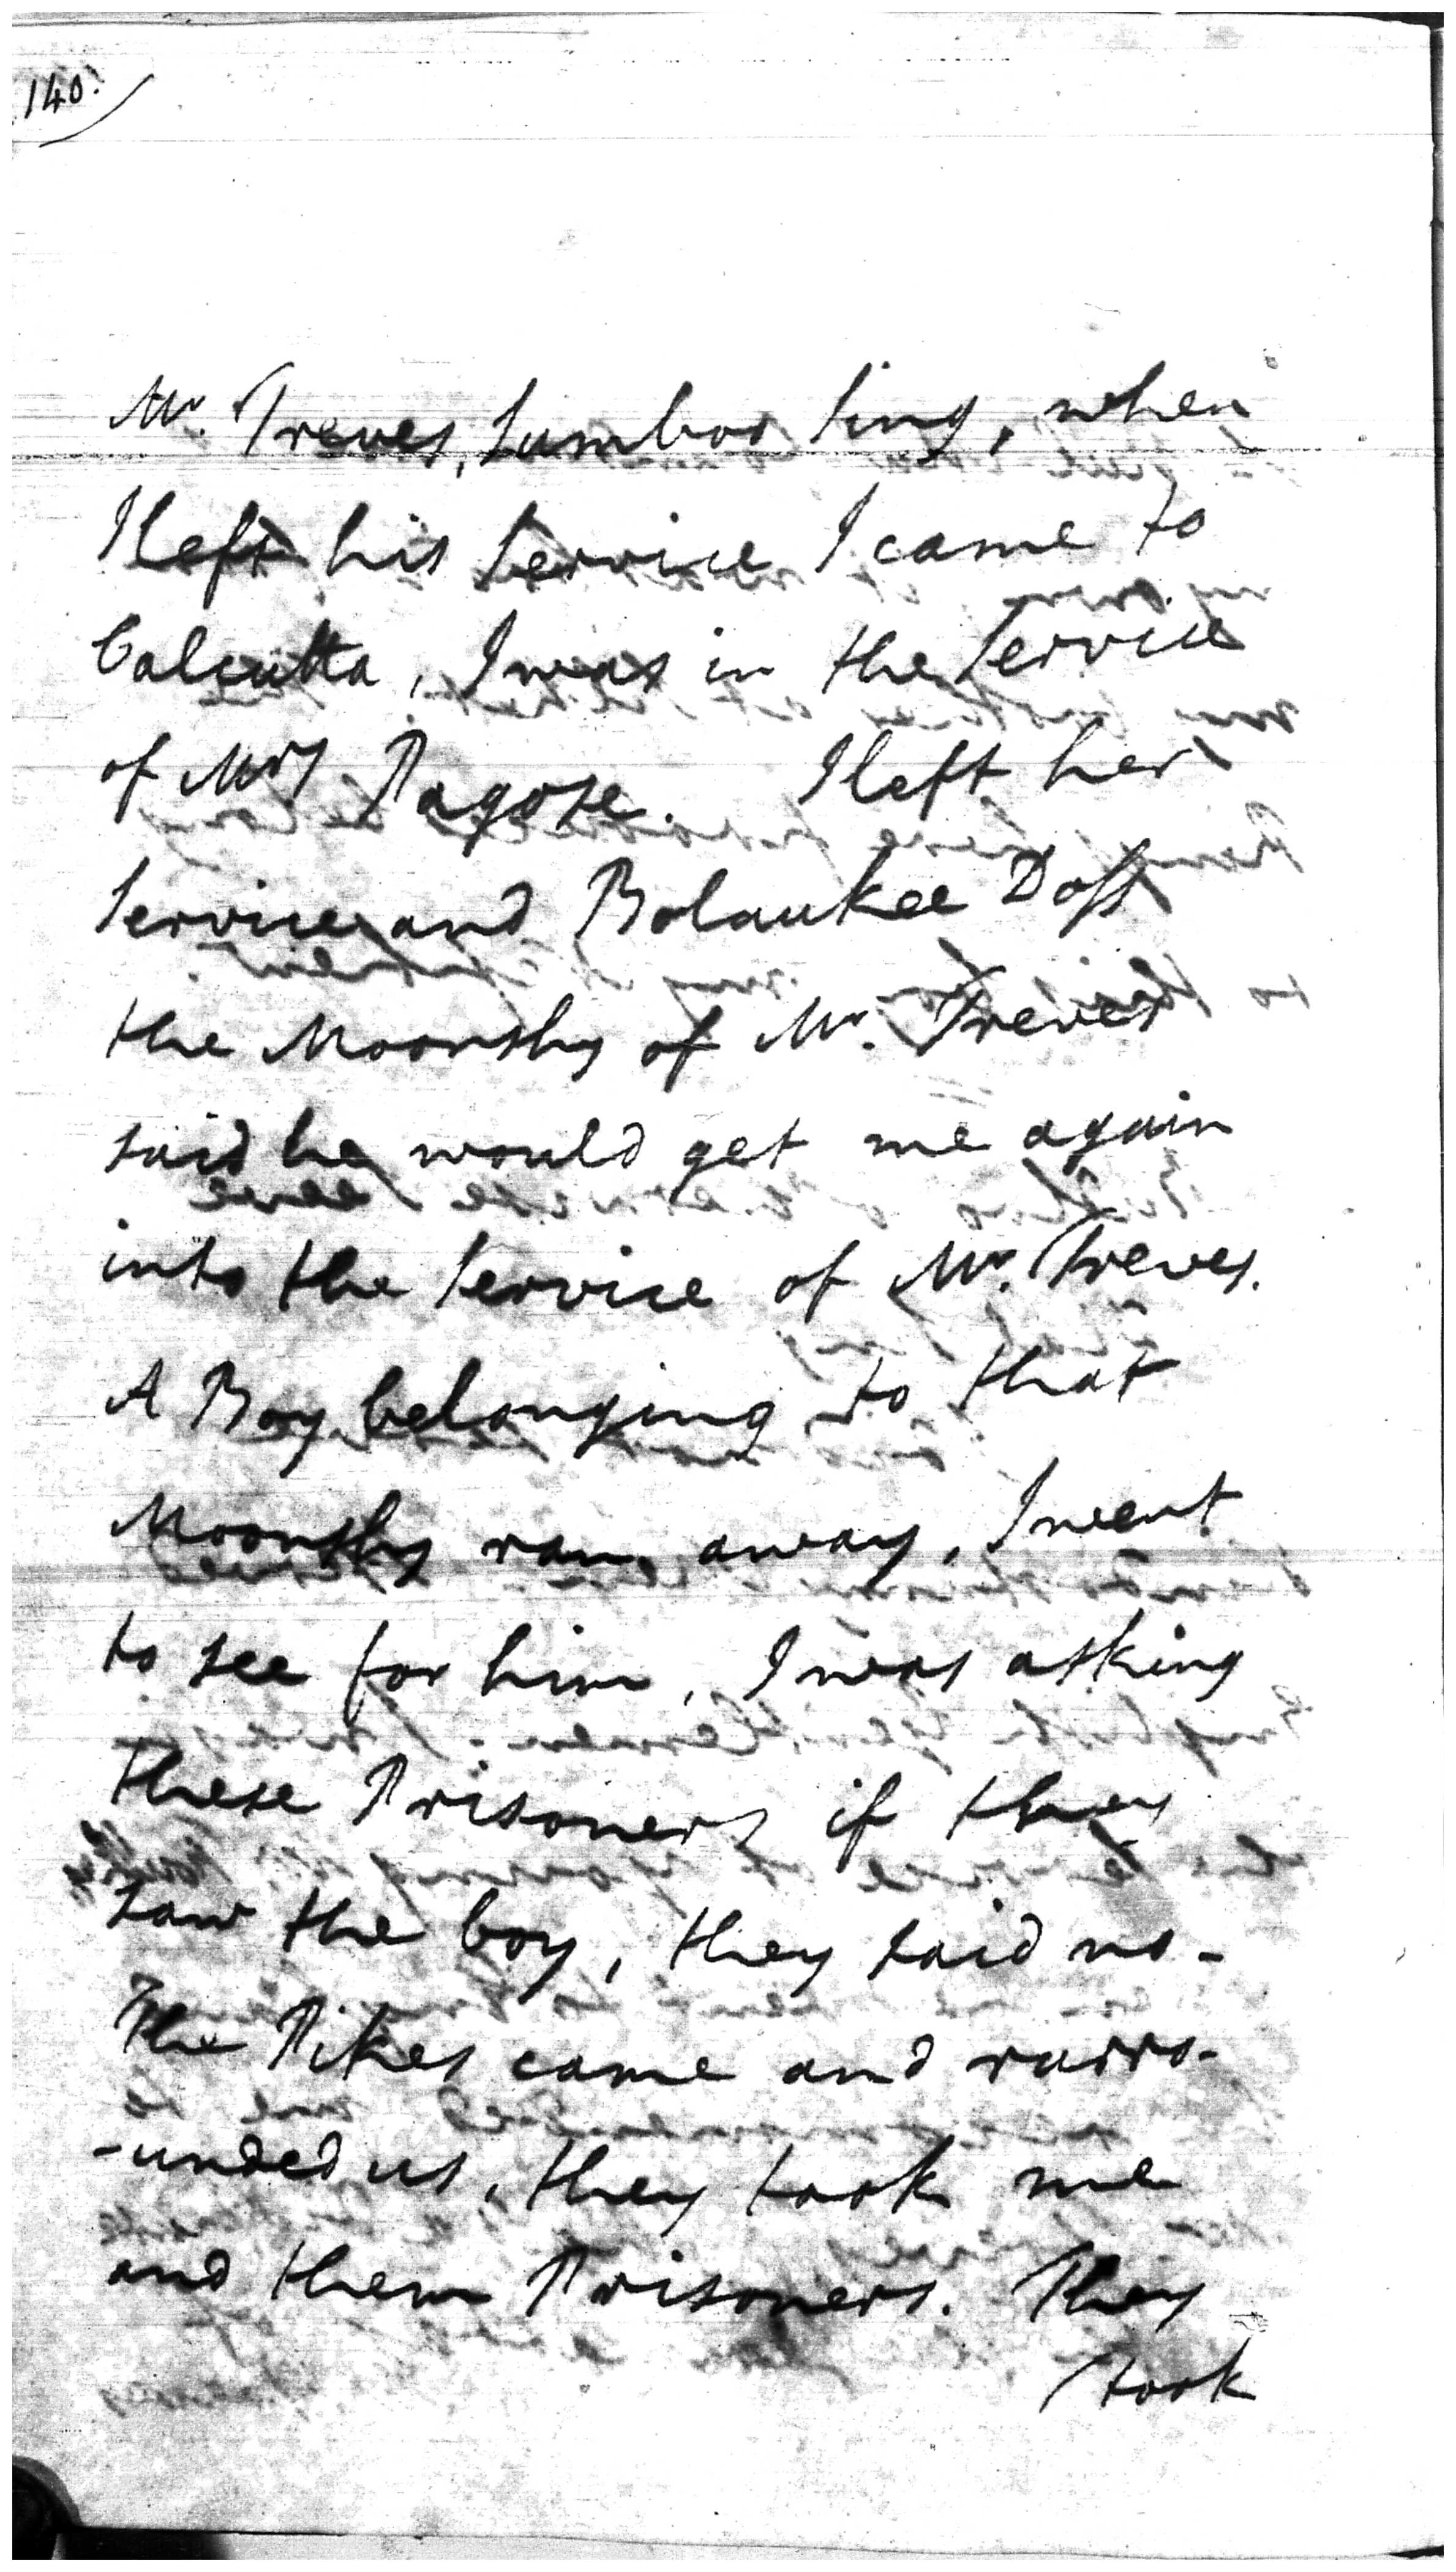 140.
Mr. Treves, Sumboo Sing, when
I left his Service I came to
Calcutta, I was in the Service
of Mrs Pagose. I left her
Service and Bolaukee Doss
the Moonshy of Mr. Treves
said he would get me again
into the Service of Mr. Treves.
A Boy belonging to that
Moonshy ran away, I went
to see for him, I was asking
these Prisoners if they
saw the boy, they said no-
The Pikes came and surro-
-unded us, they took me
and them Prisoners. They
took